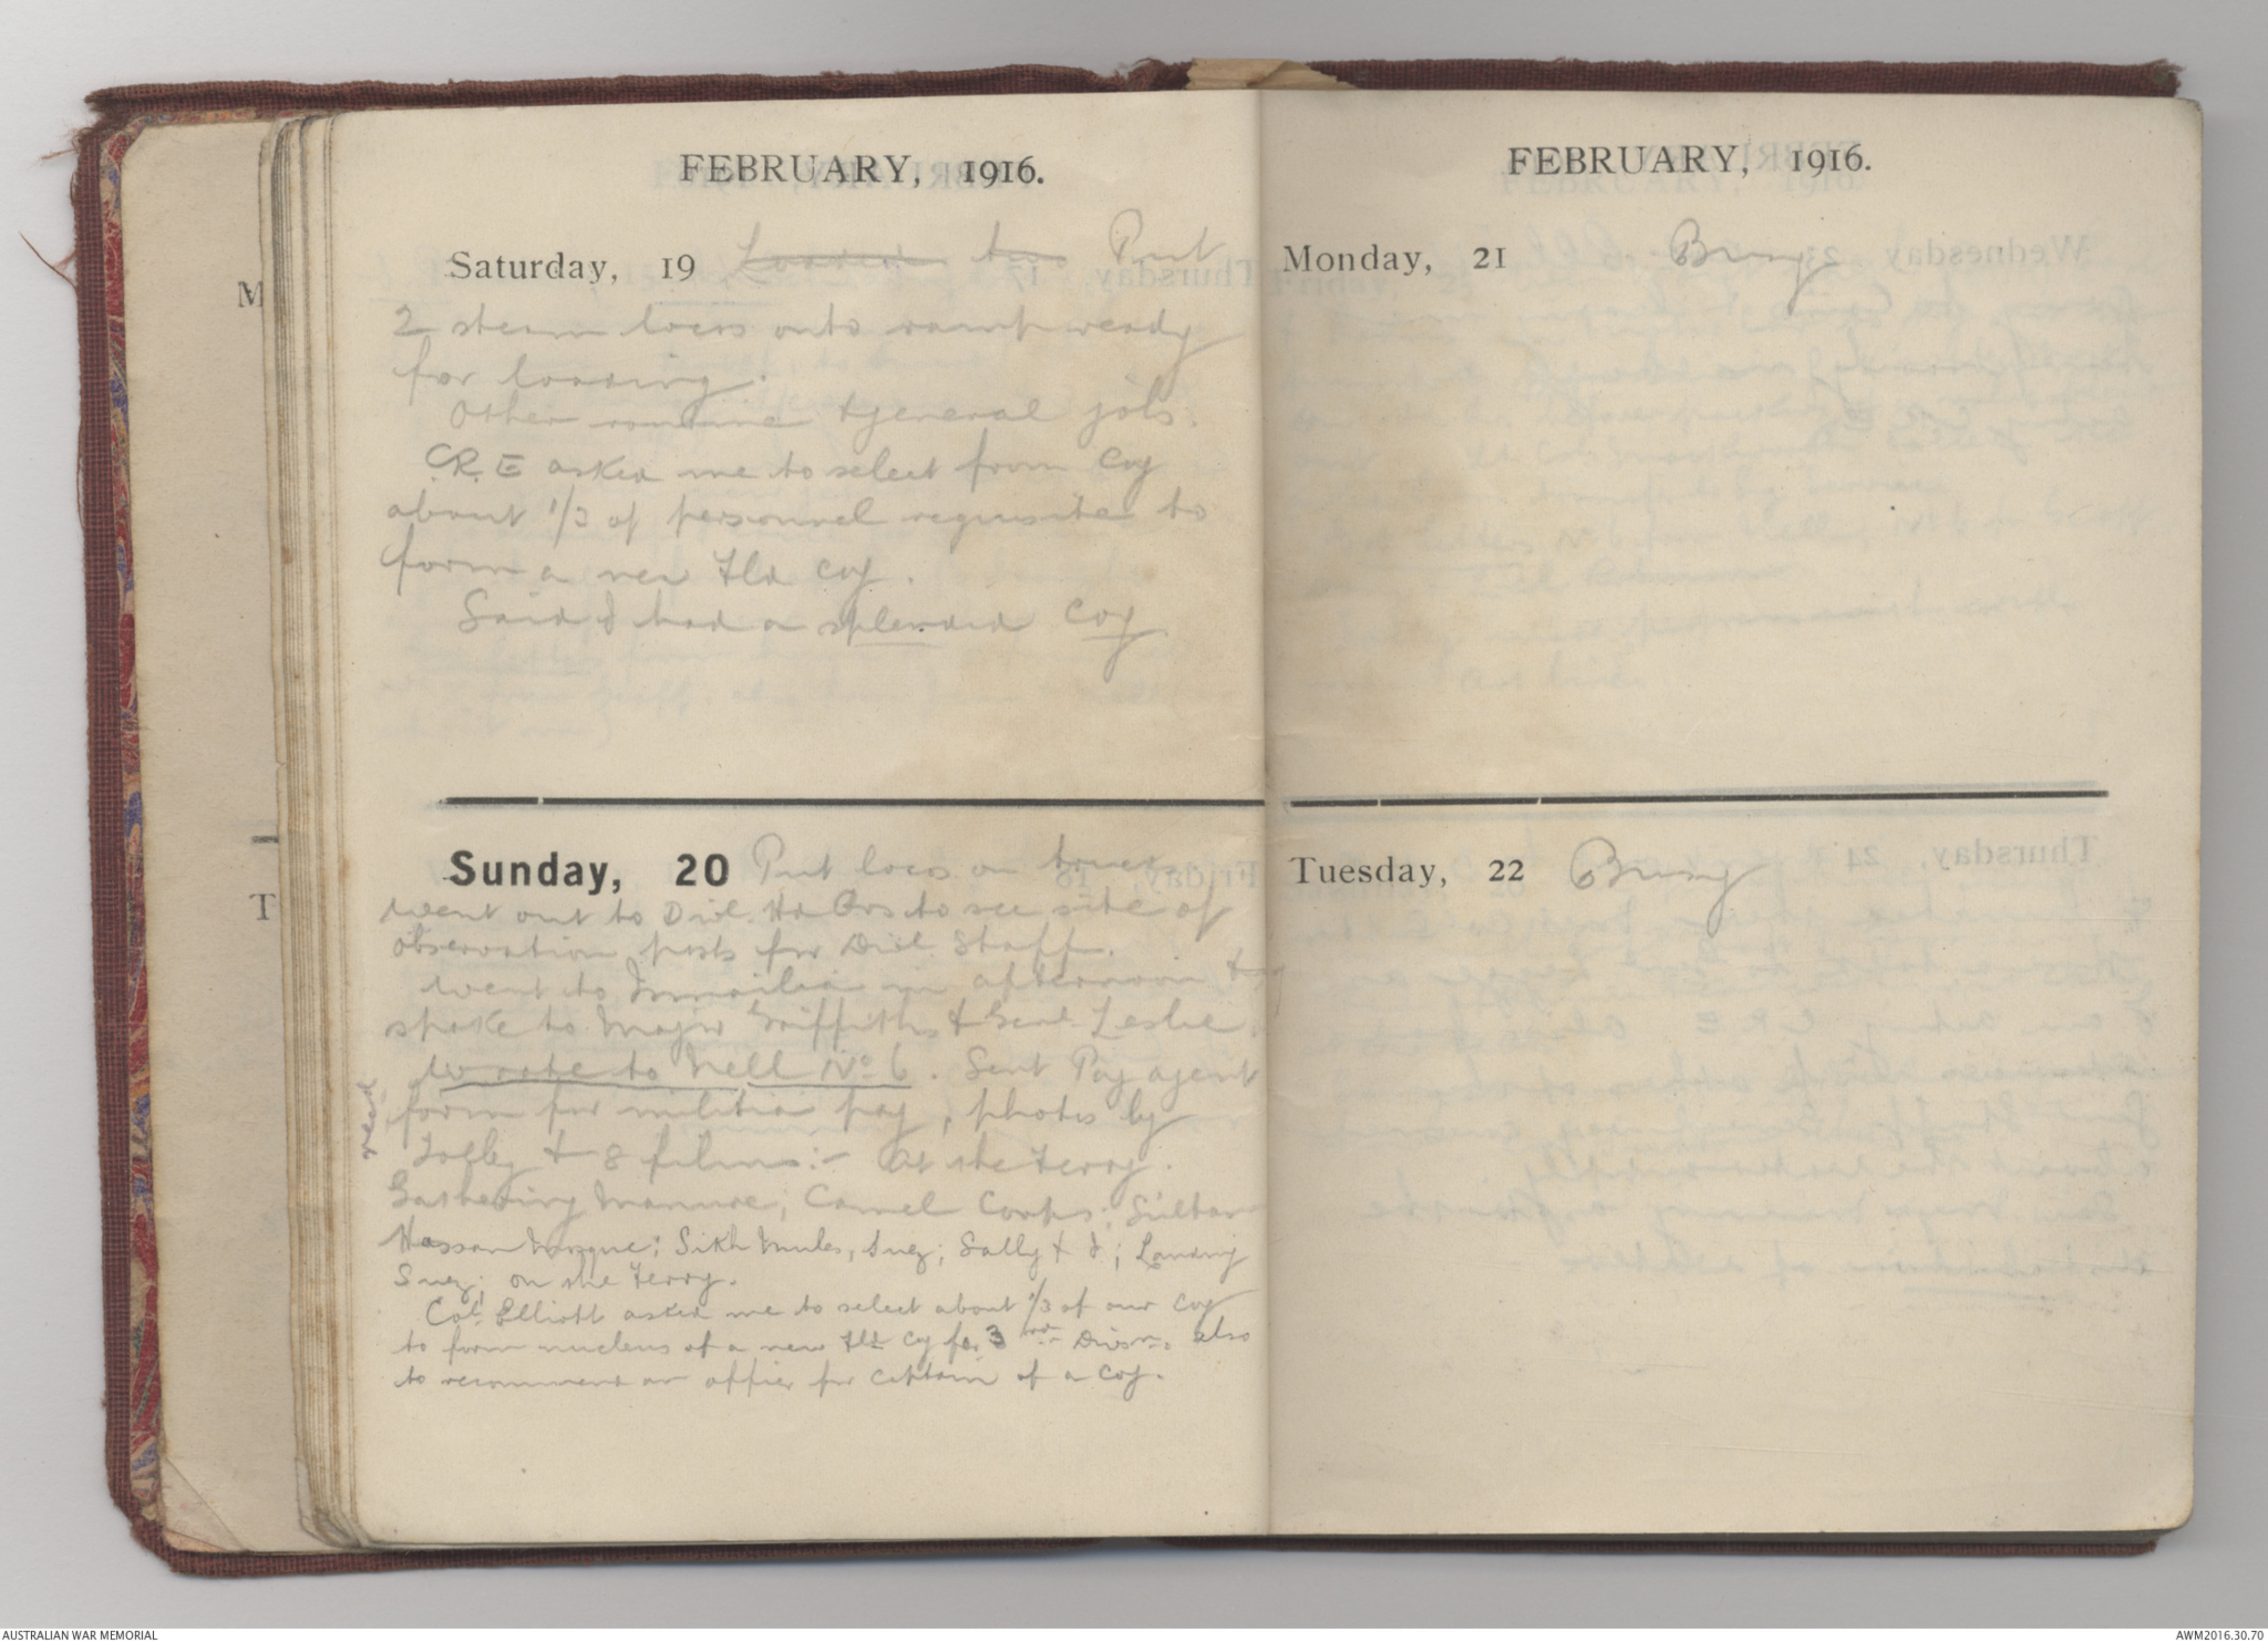 FEBRUARY, 1916.
Saturday, 19 Loaded two Put
2 steam locos onto ramp ready
for loading.
Other routine & general jobs.
C.R.E asked me to select from Coy
about 1/3 of personnel requisite to
form a new Fld Coy.
Said I had a splendid Coy
Sunday, 20 Put locos on trucks
went out to Divl. Hd Qrs to see site of
observation posts for Divl Staff.
went to Ismailia in afternoon &
spoke to Major Griffiths & Genl. Leslie.
Wrote to Nell No 6. Sent Pay agent
recd
form for militia pay, photos by
& 8 films:- At the Ferry.
Gathering Manure; Camel Corps; Sultan
Hassan Mosque; Sikh Mules, Suez; Sally & I; Landing
Suez; on the Ferry.
Col. Elliott asked me to select about 1/3 of our Coy
to form nucleus of a new Fld Coy for 3rd Divsn. also
to recommend an officer for Captain of a Coy.
FEBRUARY, 1916.
Monday, 21 Busy
Tuesday, 22 Busy
M
T
AUSTRALIAN WAR MEMORIAL
AWM2016.30.70